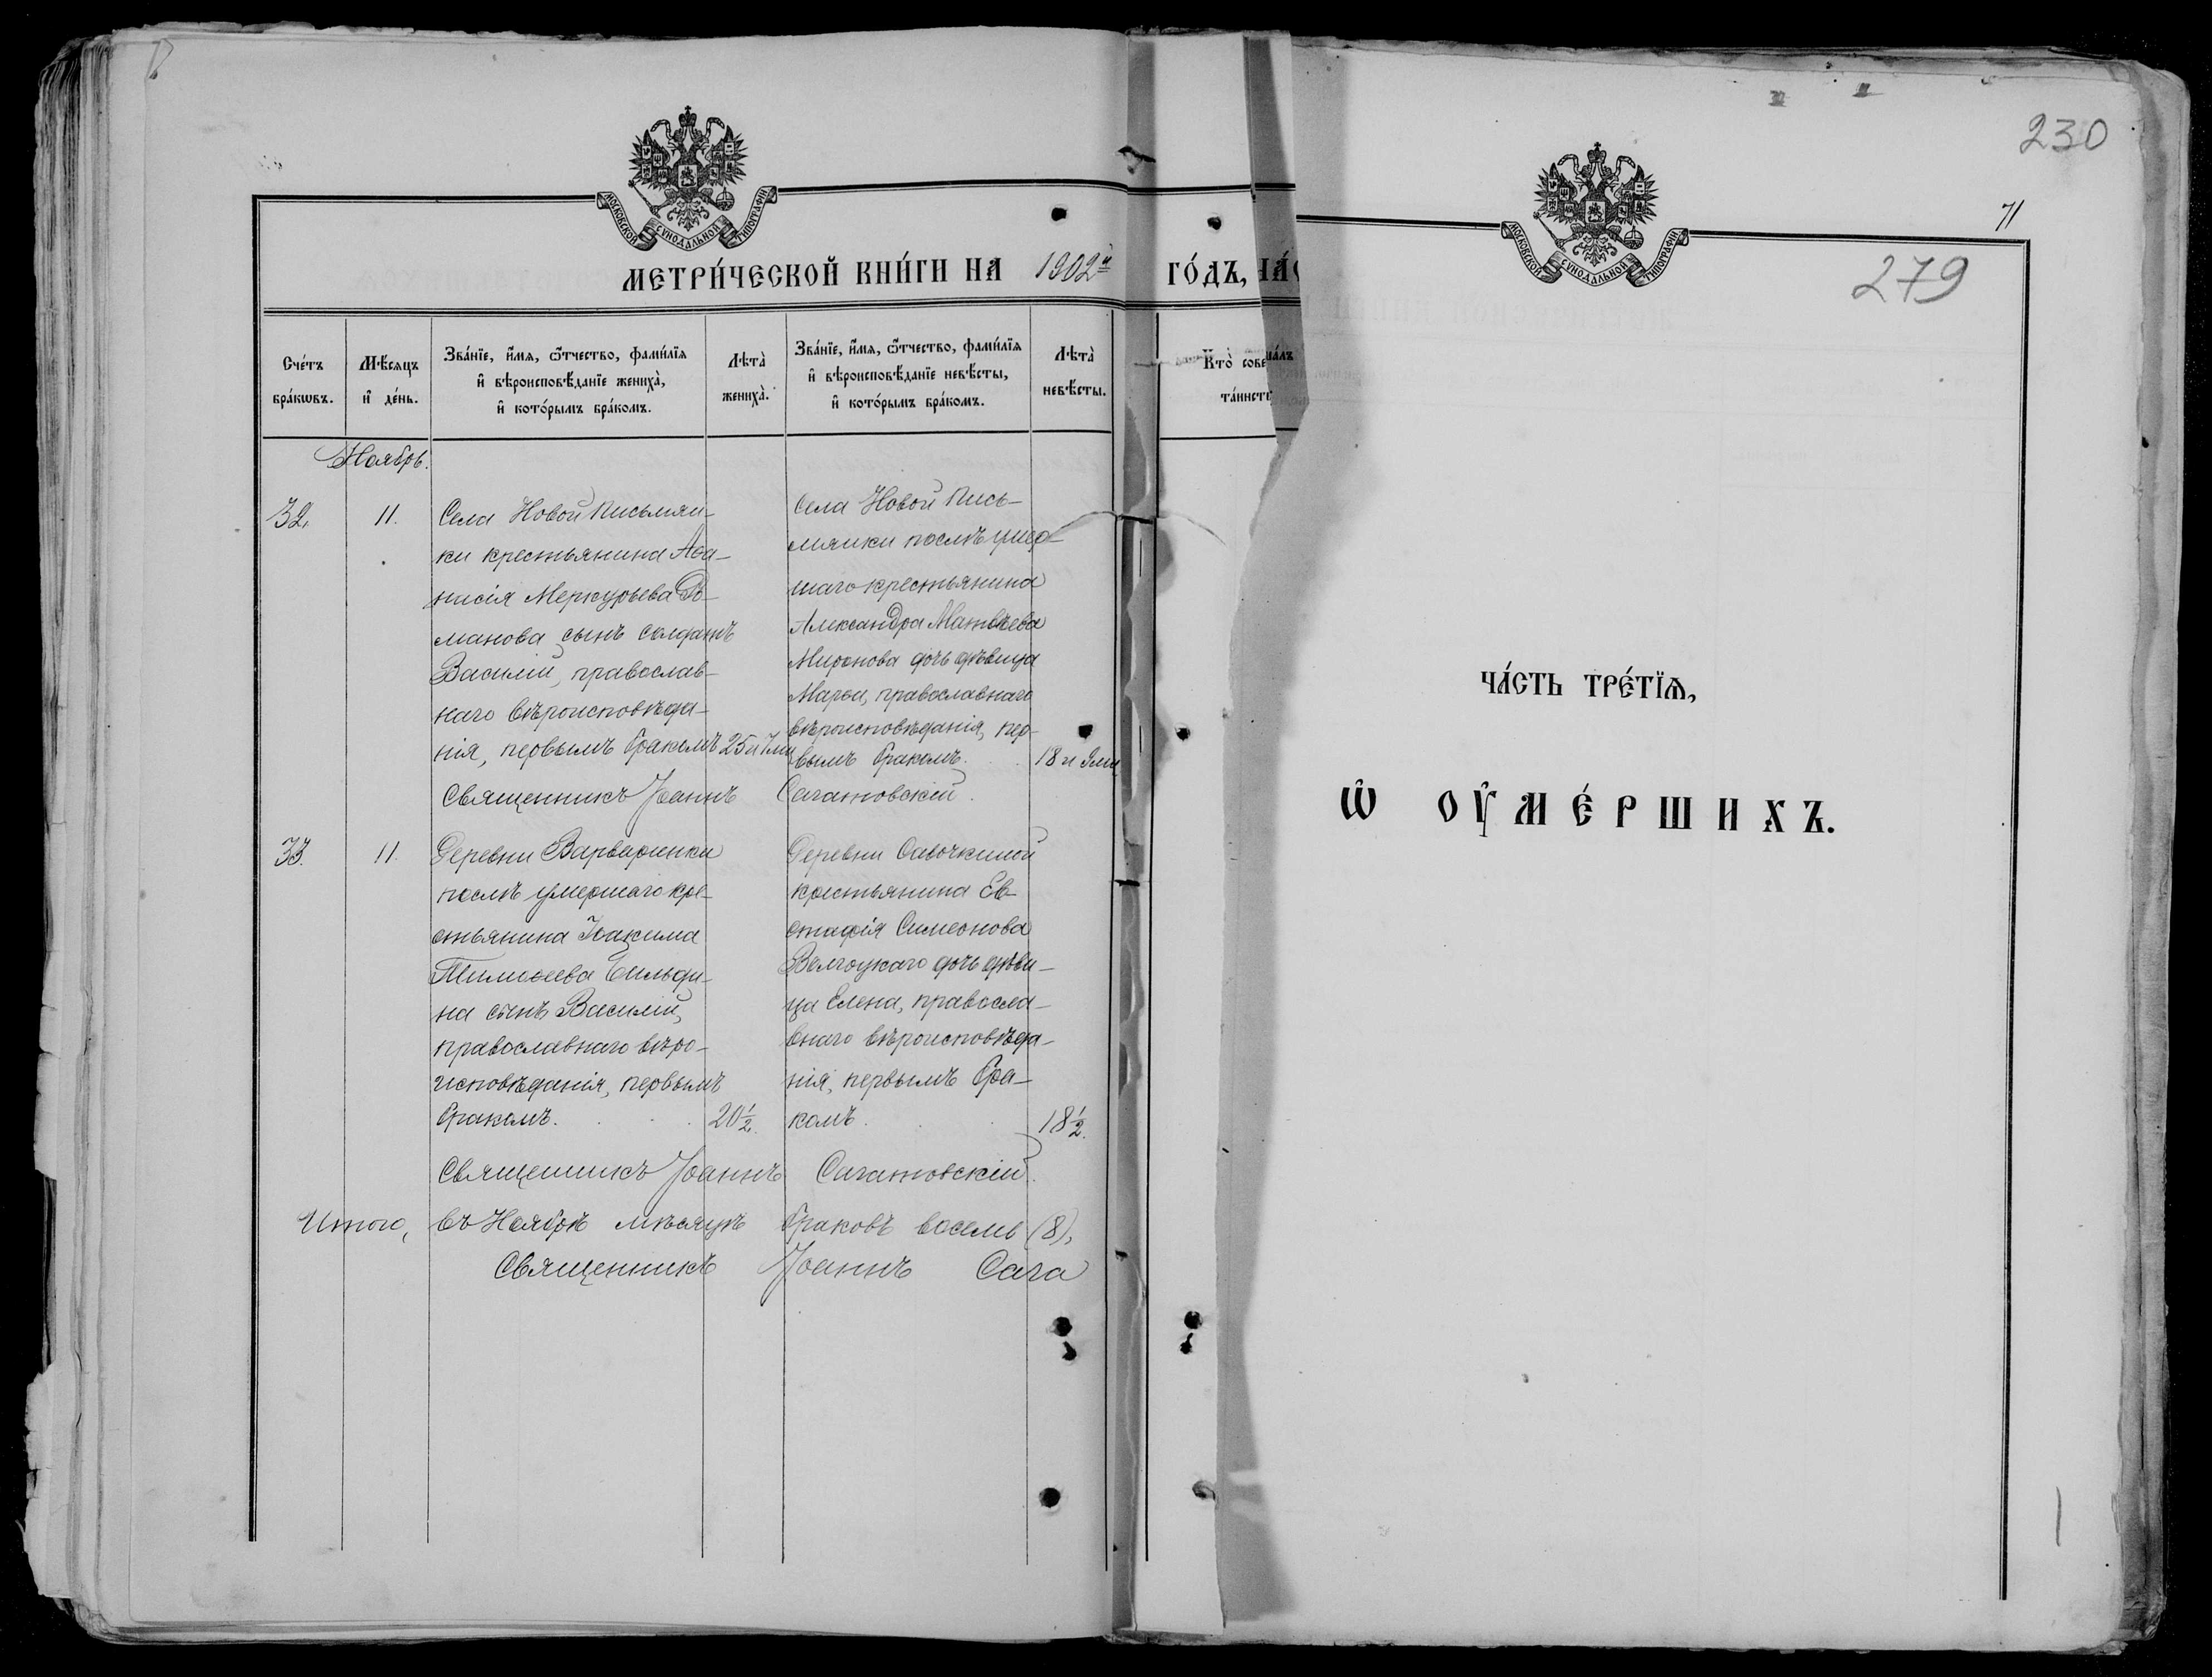 МОСКОВСКОЙ СѴНОДАЛЬНОЙ ТИПОГРАФІИ
МЕТРИ́ЧЕСКОЙ КНИ́ГИ НА 1902й ГО́ДЪ,
Сче́тъ бра́кωвъ.
Мѣ́сяцъ и҆ де́нь.
Зва́нїе, и҆́мѧ, ѻ҆́тчество, фами́лїѧ
и҆ вѣроисповѣ́данїе жениха̀,
и҆ кото́рымъ бра́комъ.
Лѣта̀
жениха̀.
Зва́нїе, и҆́мѧ, ѻ҆́тчество, фами́лїѧ
и҆ вѣроисповѣ́данїе невѣ́сты,
и҆ кото́рымъ бра́комъ.
Лѣта̀
невѣ́сты.
Кто̀
Ноябрь.
32. 11.
Села Новой Письмян-
ки крестьянина Аѳа-
насія Меркурьева Ро-
манова сынъ солдатъ
Василій, православ-
наго вѣроисповѣда-
нія, первымъ бракомъ
25 и 7 м
Села Новой Пись-
мянки послѣ умер-
шаго крестьянина
Александра Матвѣева
Миронова дочь дѣвица
Марѳа, православнаго
вѣроисповѣданія, пер-
вымъ бракомъ.
18 и
Священникъ Іоаннъ Сагатовскій.
33. 11.
Деревни Варваринки
послѣ умершаго кре-
стьянина Іоакима
Тимоѳеева Бильди-
на сынъ Василій,
православнаго вѣро-
исповѣданія, первымъ
бракомъ.
20 1/2.
Деревни Савочкиной
крестьянина Ев-
стафія Симеонова
дочь дѣви-
ца Елена, правосла-
внаго вѣроисповѣда-
нія, первымъ бра-
комъ.
18 1/2.
Священникъ Іоаннъ Сагатовскій.
Итого, въ Ноябрѣ мѣсяцѣ браковъ восемь (8),
Священникъ Іоаннъ Сага
230
71
279
МОСКОВСКОЙ СѴНОДАЛЬНОЙ ТИПОГРАФІИ
ЧА́СТЬ ТРЕ́ТЇѦ,
Ѡ҆ ОУ҆МЕ́РШИХЪ.